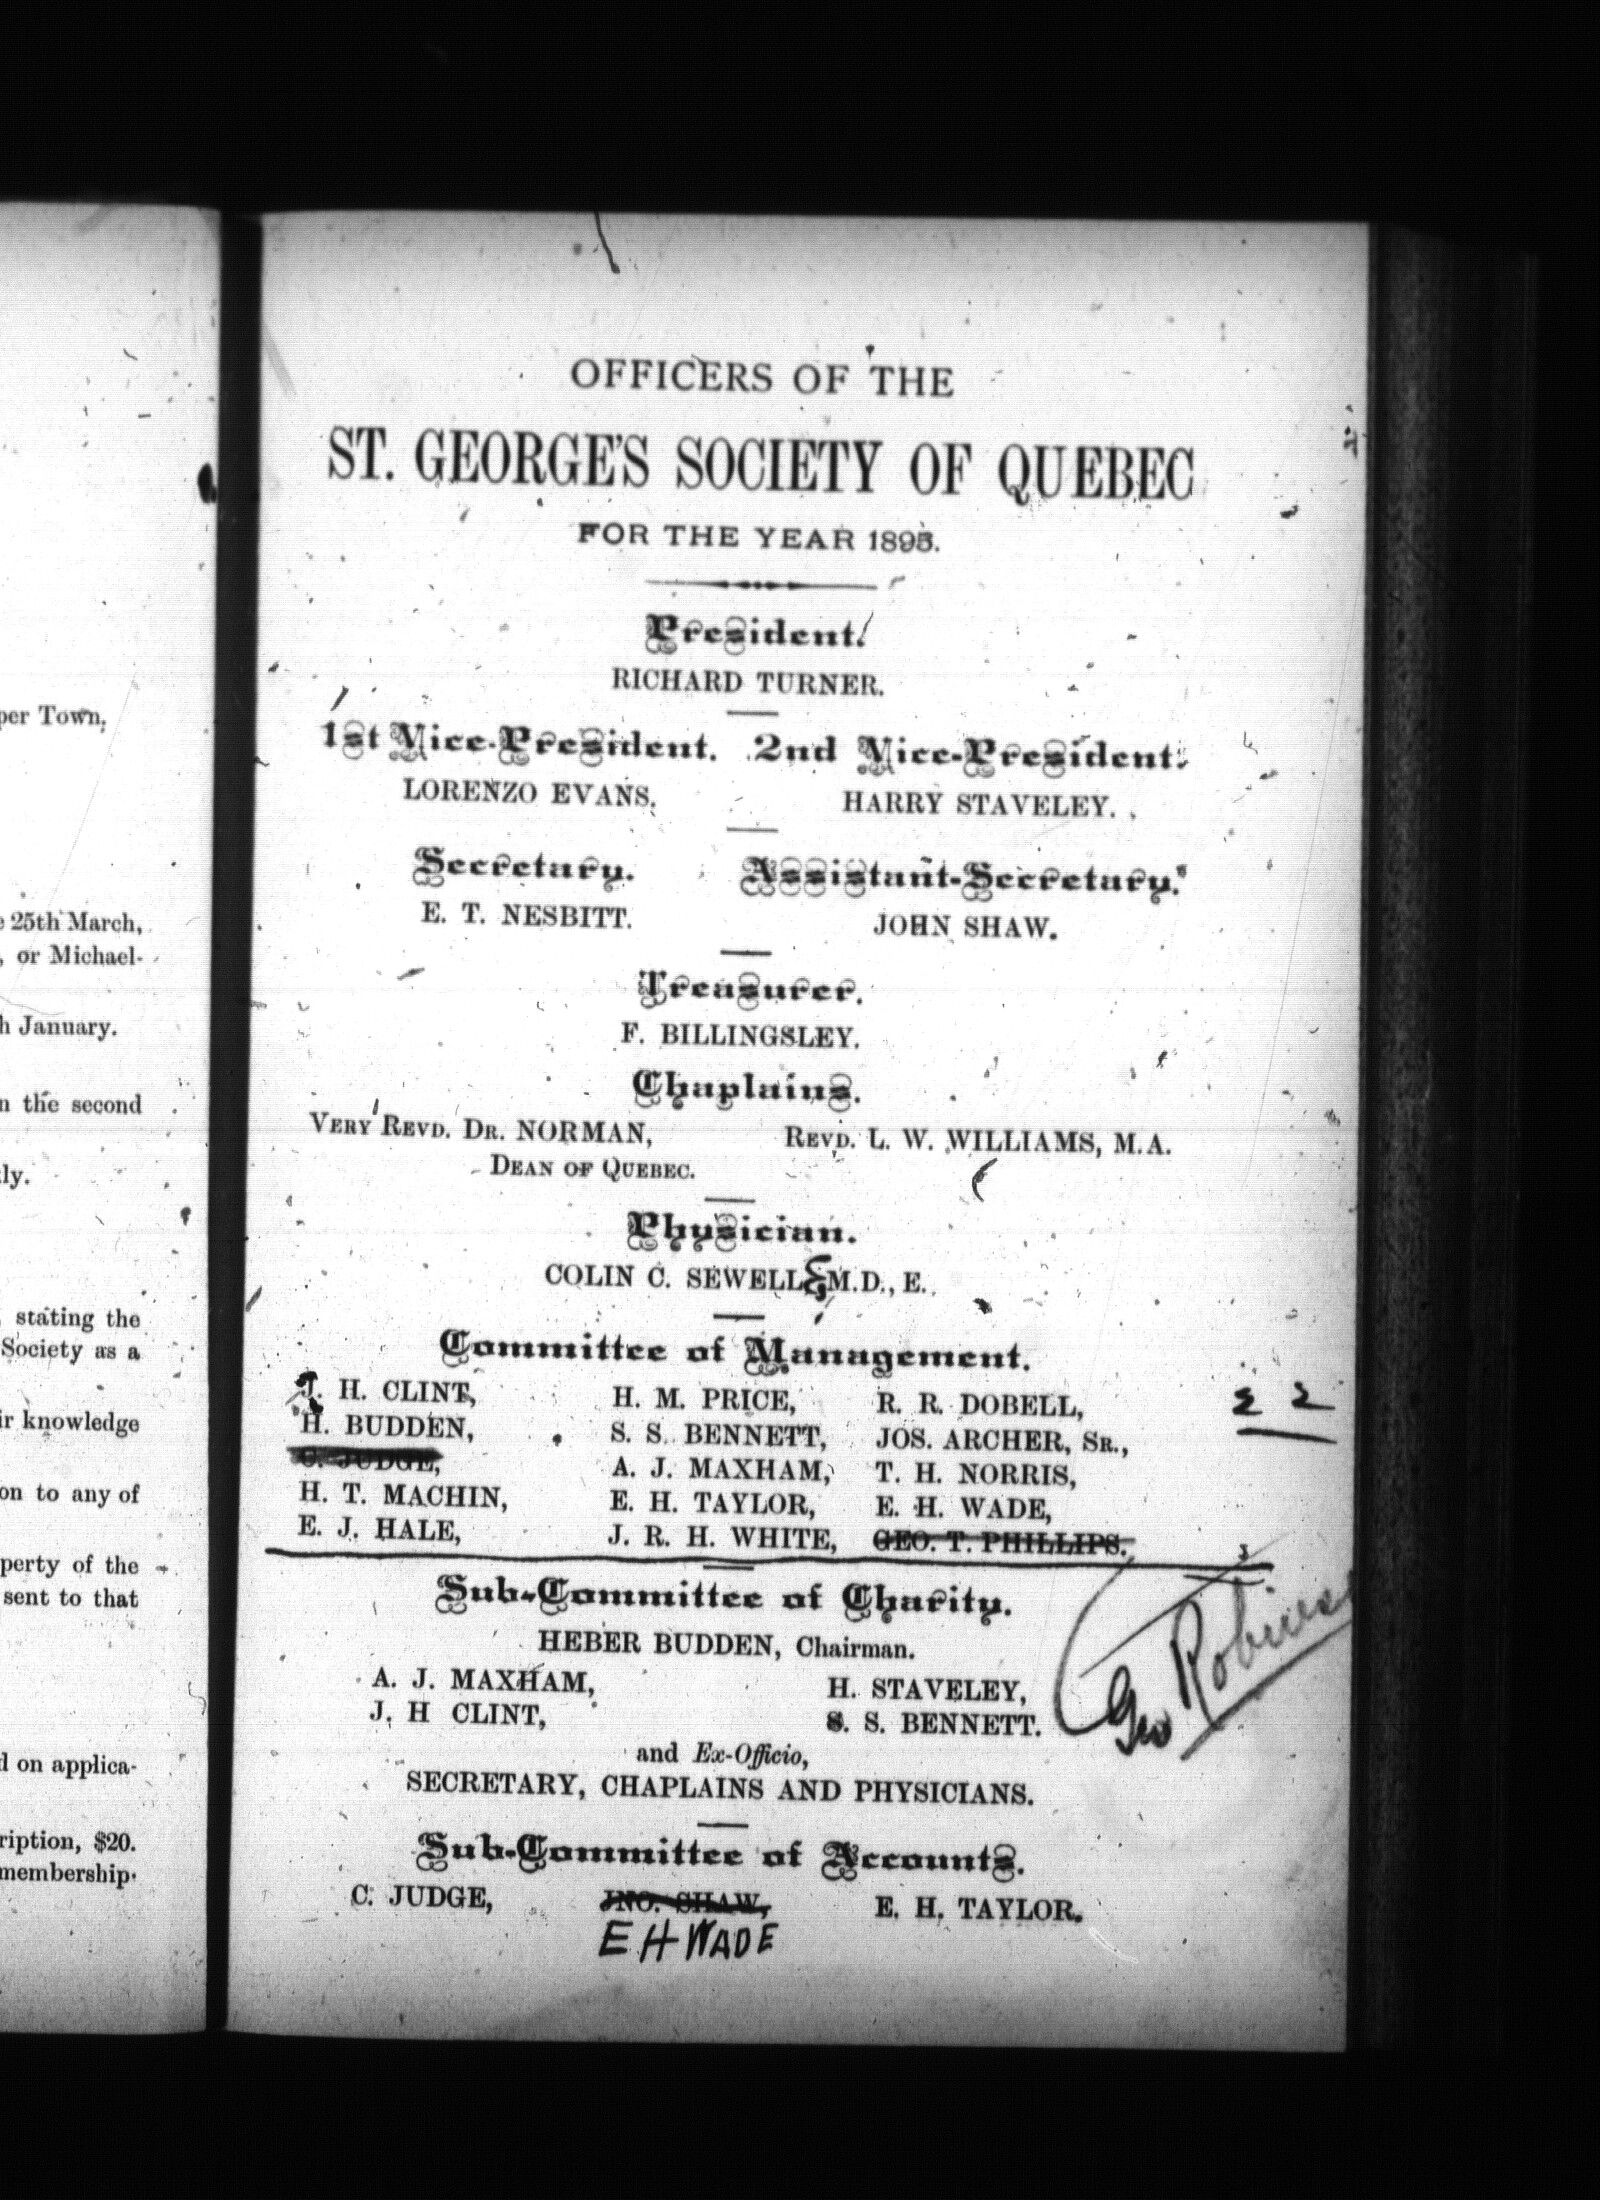 per Town,
25th March,
, or Michael-
h January.
n the second
ly.
stating the
Society as a
ir knowledge
on to any of
perty of the
sent to that
d on applica-
ription, $20.
membership.
OFFICERS OF THE
ST. GEORGE'S SOCIETY OF QUEBEC
FOR THE YEAR 1895.
President.
RICHARD TURNER.
1st Vice-President. 2nd Vice-President.
LORENZO EVANS. HARRY STAVELEY.
Secretary. Assistant-Secretary.
E. T. NESBITT. JOHN SHAW.
Treasurer.
F. BILLINGSLEY.
Chaplains.
VERY REVD. DR. NORMAN, REVD. L. W. WILLIAMS, M.A.
DEAN OF QUEBEC.
Physician.
COLIN C. SEWELL, M.D., E.
Committee of Management.
J. H. CLINT, H. M. PRICE, R. R. DOBELL,
H. BUDDEN, S. S. BENNETT, JOS. ARCHER, SR.,
C. JUDGE, A. J. MAXHAM, T. H. NORRIS,
H. T. MACHIN, E. H. TAYLOR, E. H. WADE,
E. J. HALE, J. R. H. WHITE, GEO. T. PHILLIPS.
Sub-Committee of Charity.
HEBER BUDDEN, Chairman.
A. J. MAXHAM, H. STAVELEY,
J. H CLINT, S. S. BENNETT.
Geo
and Ex-Officio,
SECRETARY, CHAPLAINS AND PHYSICIANS.
Sub-Committee of Accounts.
C. JUDGE, JNO. SHAW, E. H. TAYLOR.
E H WADE